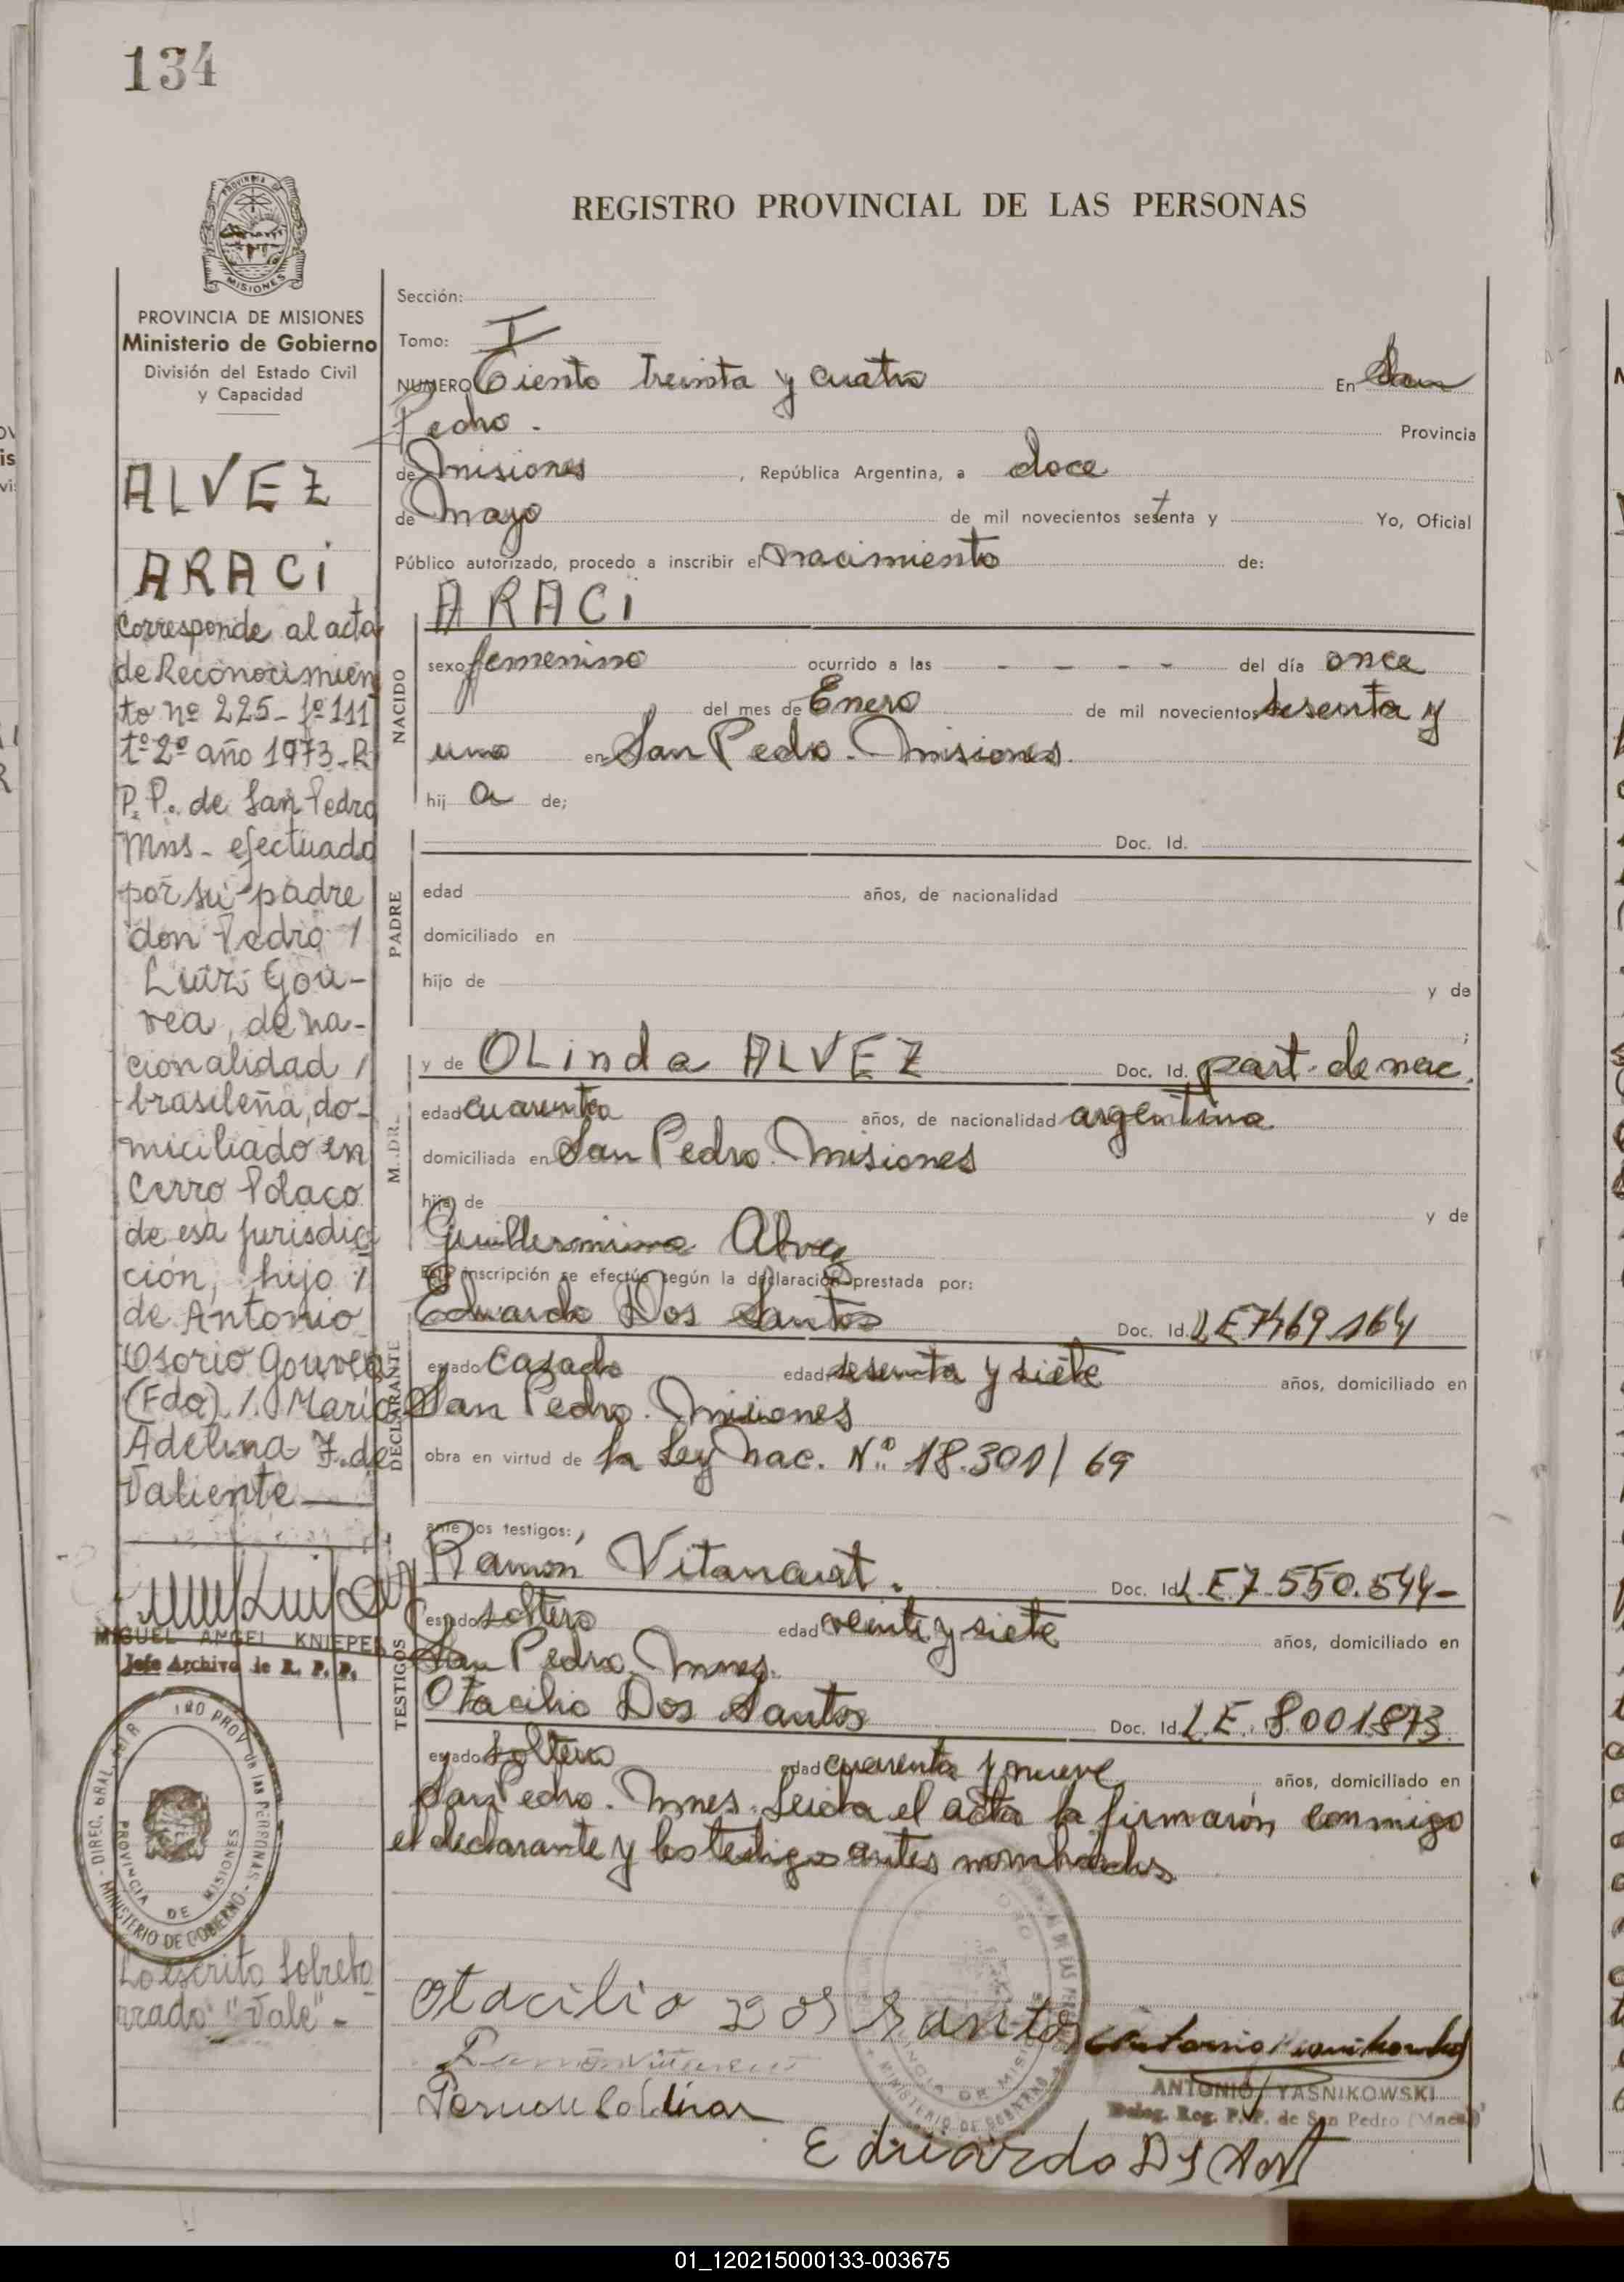 134
REGISTRO PROVINCIAL DE LAS PERSONAS
PROVINCIA DE MISIONES
Ministerio de Gobierno
División del Estado Civil
y Capacidad
ALVEZ
ARACi
Corresponde al acta
de Reconocimien
to nº 225 - fº 111
tº 2º año 1973 - R.
P.P. de San Pedro
Mns - efectuado
por su padre
don Pedro /
Luiz Gou-
vea, de na-
cionalidad /
brasileña, do-
miciliado en
Cerro Polaco
de esa jurisdic
ción, hijo /
de Antonio
Osorio Gouvea
(Fdo) /. Maria
Adelina F. de
Valiente
MIGUEL ANGEL KNIEPER
Jefe Archivo de R. P. P.
MINISTERIO DE GOBIERNO
PROVINCIA DE MISIONES
Lo escrito sobrebo
rrado "Vale" -
Sección:
Tomo: I
NUMERO Ciento treinta y cuatro En San
Pedro. Provincia
de Misiones, República Argentina, a doce
de Mayo de mil novecientos setenta y Yo, Oficial
Público autorizado, procedo a inscribir el nacimiento de:
ARACi
NACIDO
sexo femenino ocurrido a las - - - - del día once
del mes de Enero de mil novecientos sesenta y
uno en San Pedro. Misiones.
hij a de;
PADRE
Doc. Id.
edad años, de nacionalidad
domiciliado en
hijo de y de
;
M.DR.
y de OLinda ALVEZ Doc. Id. part. de nac.
edad cuarenta años, de nacionalidad argentina.
domiciliada en San Pedro. Misiones
hija de y de
Guillermina Alvez
Esta inscripción se efectúa según la declaración prestada por:
DECLARANTE
Eduardo Dos Santos Doc. Id. LE 7469164
estado casado edad sesenta y siete años, domiciliado en
San Pedro. Misiones
obra en virtud de la Ley Nac. Nº 18.301/69
ante los testigos:
TESTIGOS
Ramon Vitancurt. Doc. Id. L.E 7.550.544-
estado soltero edad veinte y siete años, domiciliado en
San Pedro. Mnes.
Otacilio Dos Santos Doc. Id. L.E. 8001873
estado soltero edad cuarenta y nueve años, domiciliado en
San Pedro. Mnes. Leida el acta la firmaron conmigo
el declarante y los testigos antes nombrados
Otacilio Dos Santos
ANTONIO YASNIKOWSKI
Deleg. Reg. P. P. de San Pedro (Mnes.)
Eduardo
01_120215000133-003675